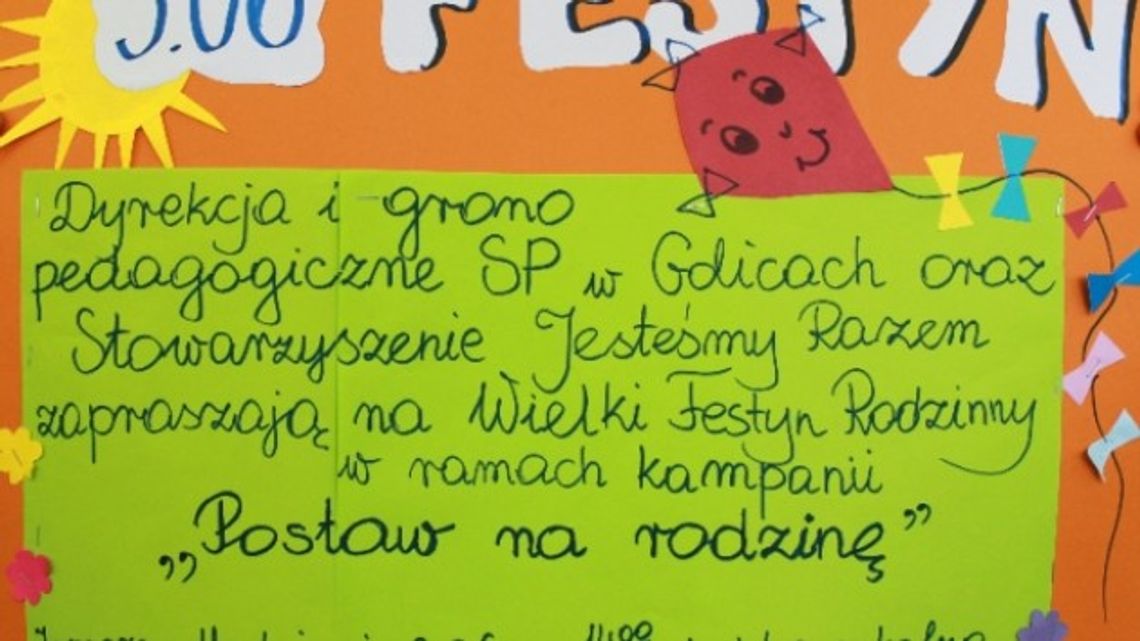 FESTYN
Dyrekcja i grono
pedagogiczne SP w Gdlicach oraz
Stowarzyszenie Jesteśmy Razem
zapraszają na Wielki Festyn Rodzinny
w ramach kampanii
„Postaw na rodzinę”